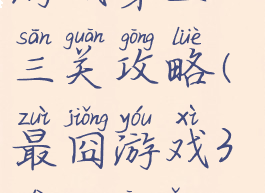 sān guān gōng lüè
三关攻略(
zuì jiǒng yóu xì
最囧游戏3